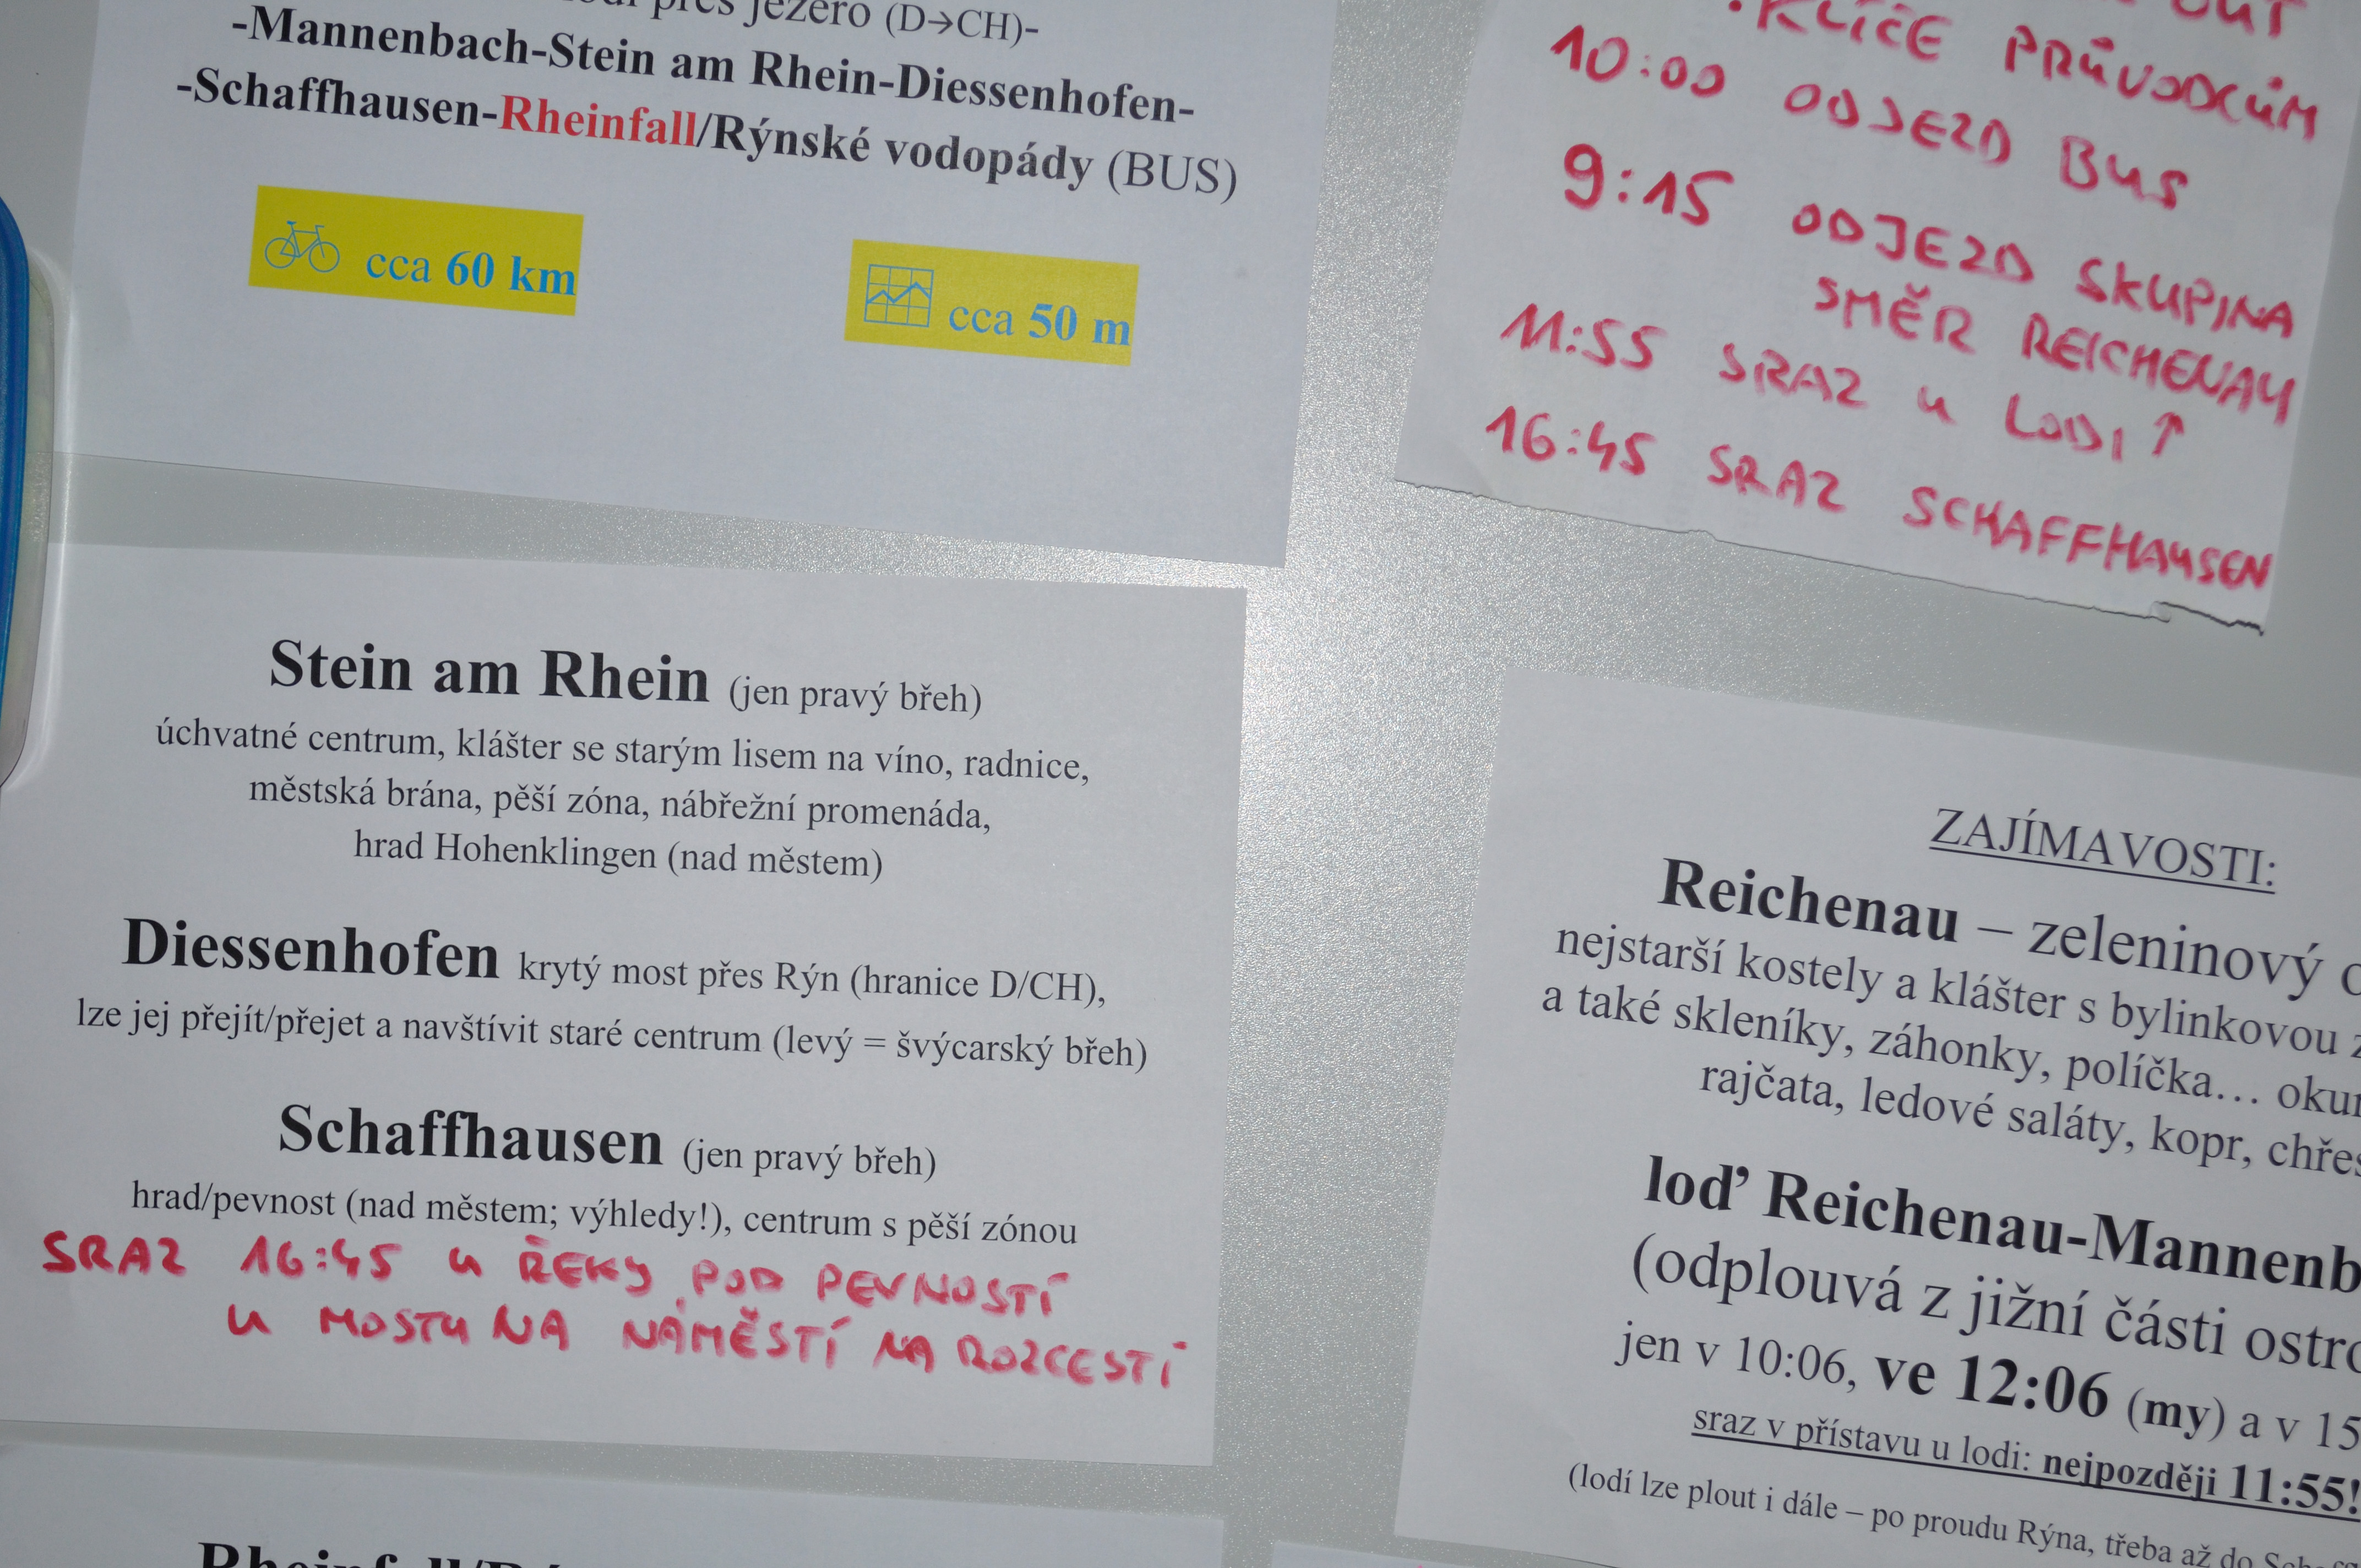 přes jezero (D→CH)-
-Mannenbach-Stein am Rhein-Diessenhofen-
-Schaffhausen-Rheinfall/Rýnské vodopády (BUS)
cca 60 km
cca 50 m
OUT
•KLÍČE PRŮVODCŮM
10:00 ODJEZD BUS
9:15 ODJEZD SKUPINA
SMĚR REICHENAU
11:55 SRAZ U LODI ↑
16:45 SRAZ SCHAFFHAUSEN
Stein am Rhein (jen pravý břeh)
úchvatné centrum, klášter se starým lisem na víno, radnice,
městská brána, pěší zóna, nábřežní promenáda,
hrad Hohenklingen (nad městem)
Diessenhofen krytý most přes Rýn (hranice D/CH),
lze jej přejít/přejet a navštívit staré centrum (levý = švýcarský břeh)
Schaffhausen (jen pravý břeh)
hrad/pevnost (nad městem; výhledy!), centrum s pěší zónou
SRAZ 16:45 U ŘEKY POD PEVNOSTÍ
U MOSTU NA NÁMĚSTÍ NA ROZCESTÍ
ZAJÍMAVOSTI:
Reichenau – zeleninový
nejstarší kostely a klášter s bylinkovou
a také skleníky, záhonky, políčka…
rajčata, ledové saláty, kopr,
loď Reichenau-Mannenb
(odplouvá z jižní části ostro
jen v 10:06, ve 12:06 (my) a v 15
sraz v přístavu u lodi: nejpozději 11:55!
(lodí lze plout i dále – po proudu Rýna, třeba až do